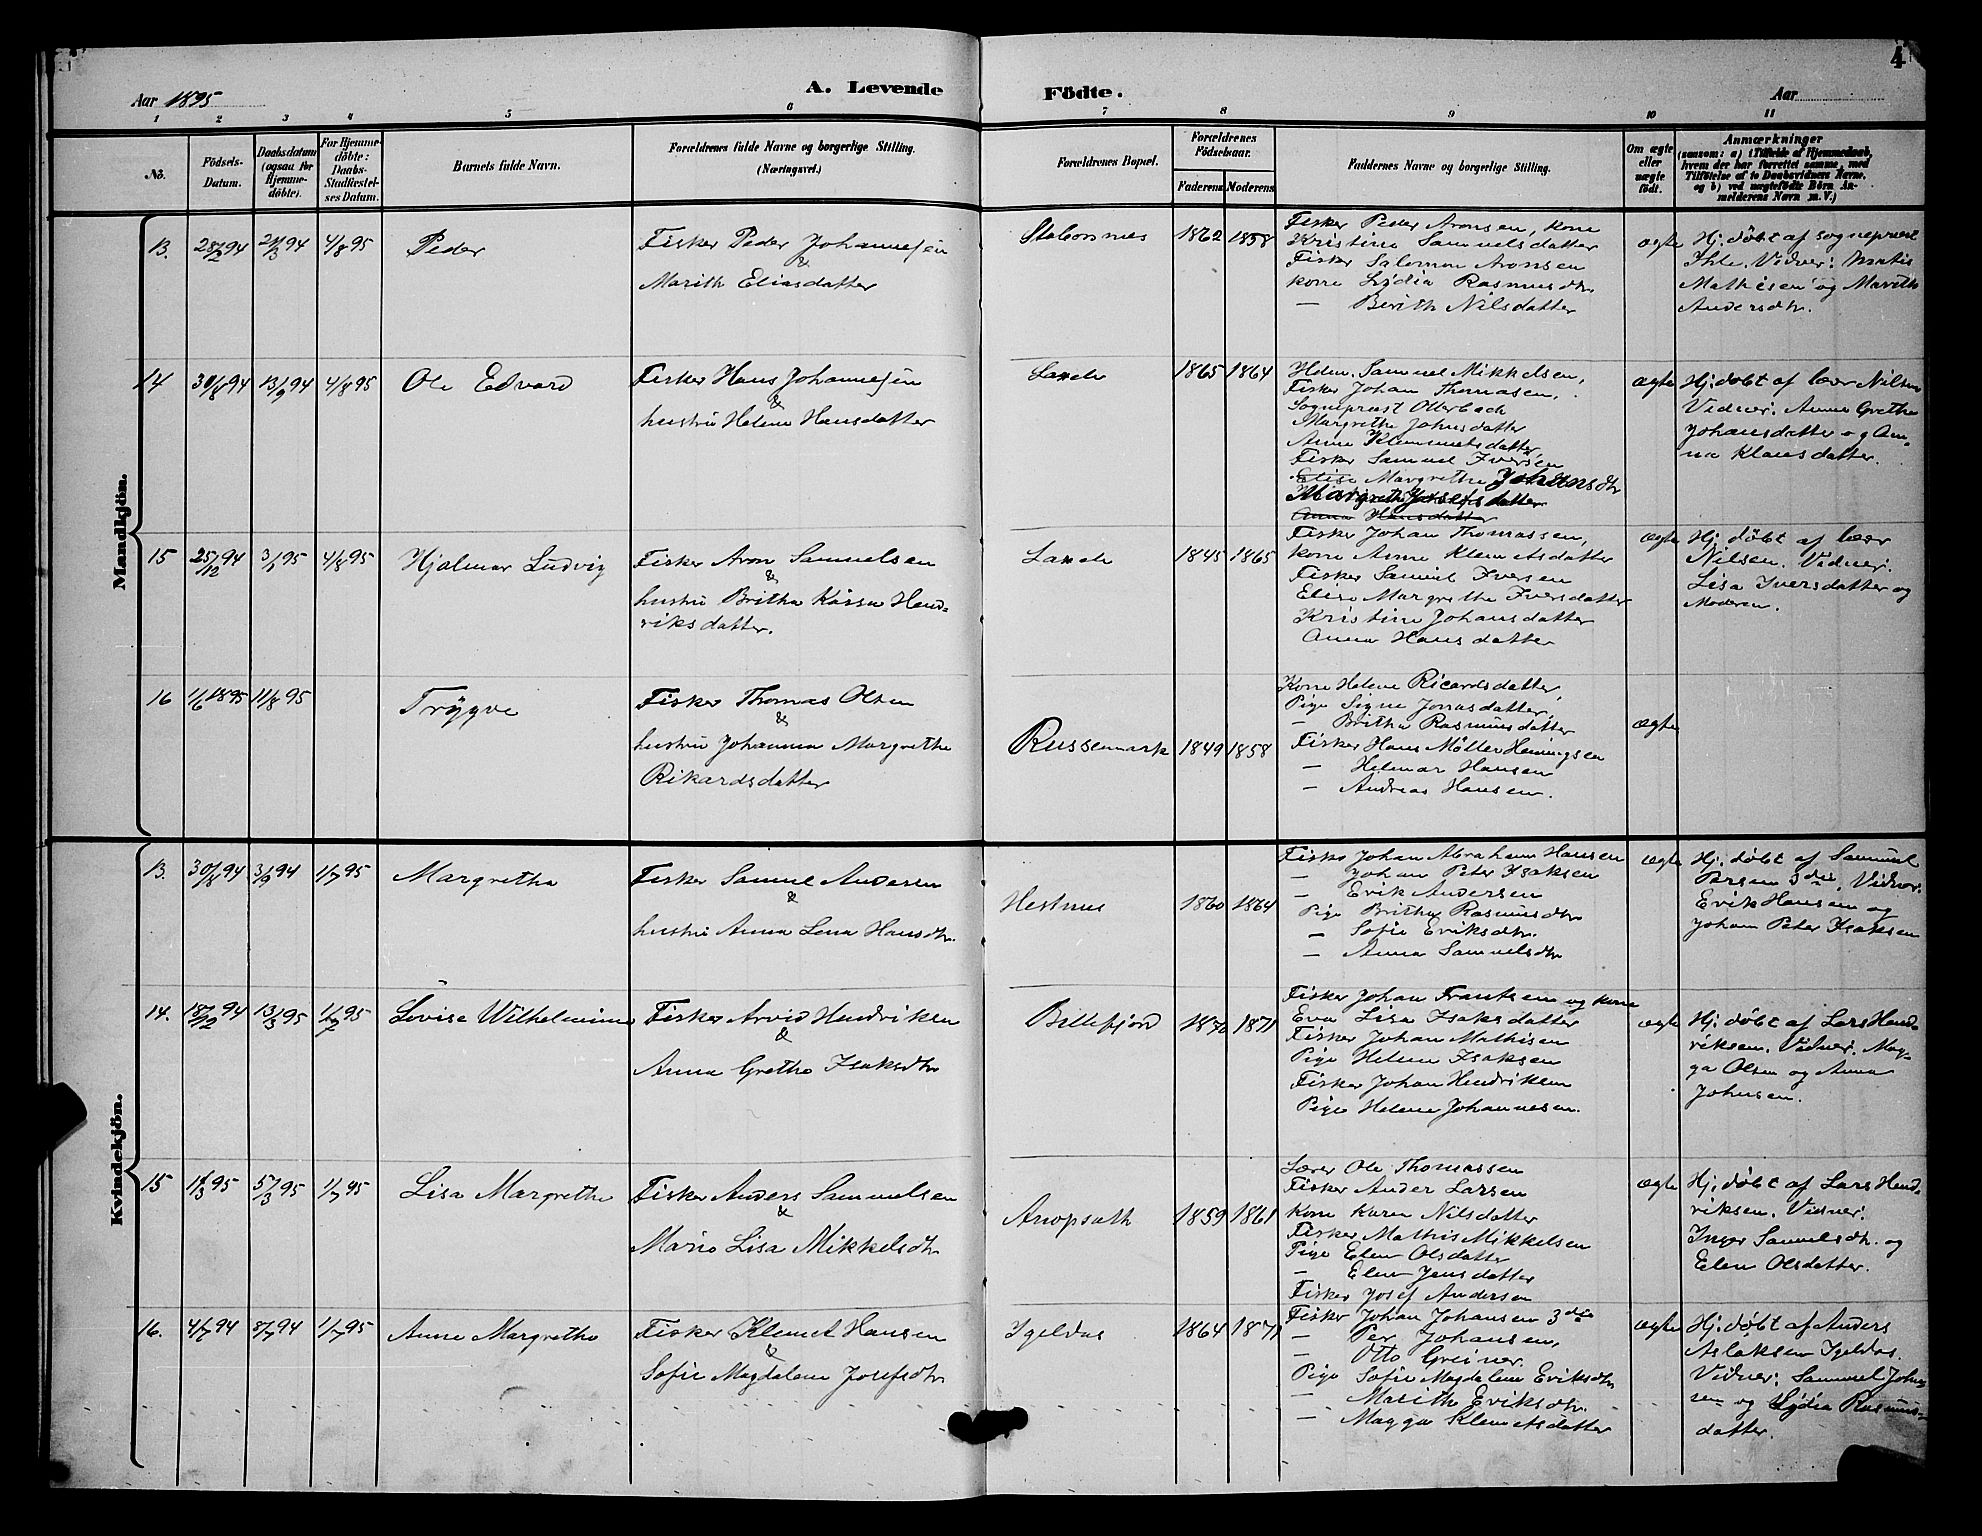 4
Aar 1895
A. Levende
Födte.
Aar
1 2 3 4 5 6 7 8 9 10 11
No.
Födsels-
Datum.
Daabsdatum
(ogsaa for
Hjemme-
döbte).
For Hjemme-
döbte:
Daabs-
Stadfæstel-
ses Datum.
Barnets fulde Navn.
Forældrenes fulde Navne og borgerlige Stilling.
(Næringsvei.)
Forældrenes Bopæl.
Forældrenes
Födselsaar.
Faderens
Moderens
Faddernes Navne og borgerlige Stilling.
Om ægte
eller
uægte
födt.
Anmærkninger
(saasom: a) i Tilfælde af Hjemmedaab,
hvem der har forrettet samme, med
Tilföielse af to Daabsvidners Navne,
og b) ved uægtefödte Börn An-
melderens Navn m. V.)
Mandkjön.
13. 28/2 94 4/8 95
Peder
Fisker Peder Johannesen
&
Marith Eliasdatter
1862 1858
Fisker Peder Aronsen, kone
Kristine Samuelsdatter
Fisker Salomon Aronsen
kone Lydia Rasmusdtr.
— Berith Nilsdatter
ægte
Hj. døbt af sogneprest
Ihle. Vidner: Mathis
Mathisen og Marith
Andersdtr.
14 30/8 94 13/9 94 4/8 95
Ole Edvard
Fisker Hans Johannesen
&
hustru Helene Hansdatter
1865 1864
Samuel Mikkelsen,
Fisker Johan Thomasen,
Sogneprest Otterbech
Margrethe Johnsdatter
Anna Klemmetsdatter,
Fisker Samuel Iversen
Elise Margrethe Johansdtr
Margrethe Josefsdatter
Anna Hansdatter
ægte
Hj. døbt af lærer Nilsen
Vidner: Anne Grethe
Johansdatter og An-
na Klausdatter.
15 25/12 94 3/1 95 4/8 95
Hjalmar Ludvig
Fisker Aron Samuelsen
&
hustru Britha Kaisa Hend-
riksdatter.
1845 1865
Fisker Johan Thomassen,
kone Anne Klemetsdatter
Fisker Samuel Iversen
Elise Margrethe Iversdatter
Kristine Johansdatter
Anna Hansdatter
ægte
Hj. døbt af lærer
Nilsen. Vidner:
Lisa Iversdatter og
Moderen.
16 1/6 1895 11/8 95
Trygve
Fisker Thomas Olsen
&
hustru Johanna Margrethe
Rikardsdatter
Russemark 1849 1858
Kone Helene Ricardsdatter,
Pige Signe Jonasdatter,
— Britha Rasmusdatter
Fisker Hans Møller Heningsen
— Helmar Hansen
— Andreas Hansen.
ægte
Kvindekjön.
13. 30/8 94 3/9 94 1/7 95
Margretha
Fisker Samuel Andersen
&
hustru Anna Lena Hansdtr.
Hestnes 1860 1864
Fisker Johan Abraham Hansen
— Johan Peter Isaksen
— Erik Andersen
Pige Britha Rasmusdtr
— Sofie Eriksdtr.
— Anna Samuelsdtr
ægte
Hj. døbt af Samuel
Persen 3die. Vidner:
Erik Hansen og
Johan Peter Isaksen
14. 18/12 94 13/3 95 1/7 95
Lovise Wilhelmine
Fisker Arvid Hendriksen
&
Anna Grethe Isaksdtr
Billefjord 1872 1871
Fisker Johan Frantsen og kone
Eva Lisa Isaksdatter
Fisker Johan Mathisen
Pige Helene Isaksen
Fisker Johan Hendriksen
Pige Helene Johannesen.
ægte
Hj. døbt af Lars Hend-
riksen. Vidner: Mag-
ga Olsen og Anna
Johnsen.
15 1/3 95 5/3 95 1/7 95
Lisa Margrethe
Fisker Anders Samuelsen
&
Marie Lisa Mikkelsdtr
Anopsath 1859 1861
Lærer Ole Thomassen
Fisker Ander Larsen
Kone Karen Nilsdatter
Fisker Mathis Mikkelsen
Pige Elen Olsdatter
— Elen Jensdatter
Fisker Josef Andersen
ægte
Hj. døbt af Lars Hend-
riksen. Vidner:
Inger Samuelsdtr. og
Elen Olsdatter.
16. 4/7 94 8/7 94 1/7 95
Anne Margrethe
Fisker Klemet Hansen
&
Sofie Magdalene Josefsdtr
Igeldas 1864 1871
Fisker Johan Johansen 3die
— Per Johansen,
— Otto Greiner.
Pige Sofie Magdalene Eriksdtr
— Marith Eriksdtr.
— Magga Klemetsdatter
ægte
Hj. døbt af Anders
Aslaksen Igeldas.
Vidner: Samuel John-
sen og Lydia Rasmus-
datter.